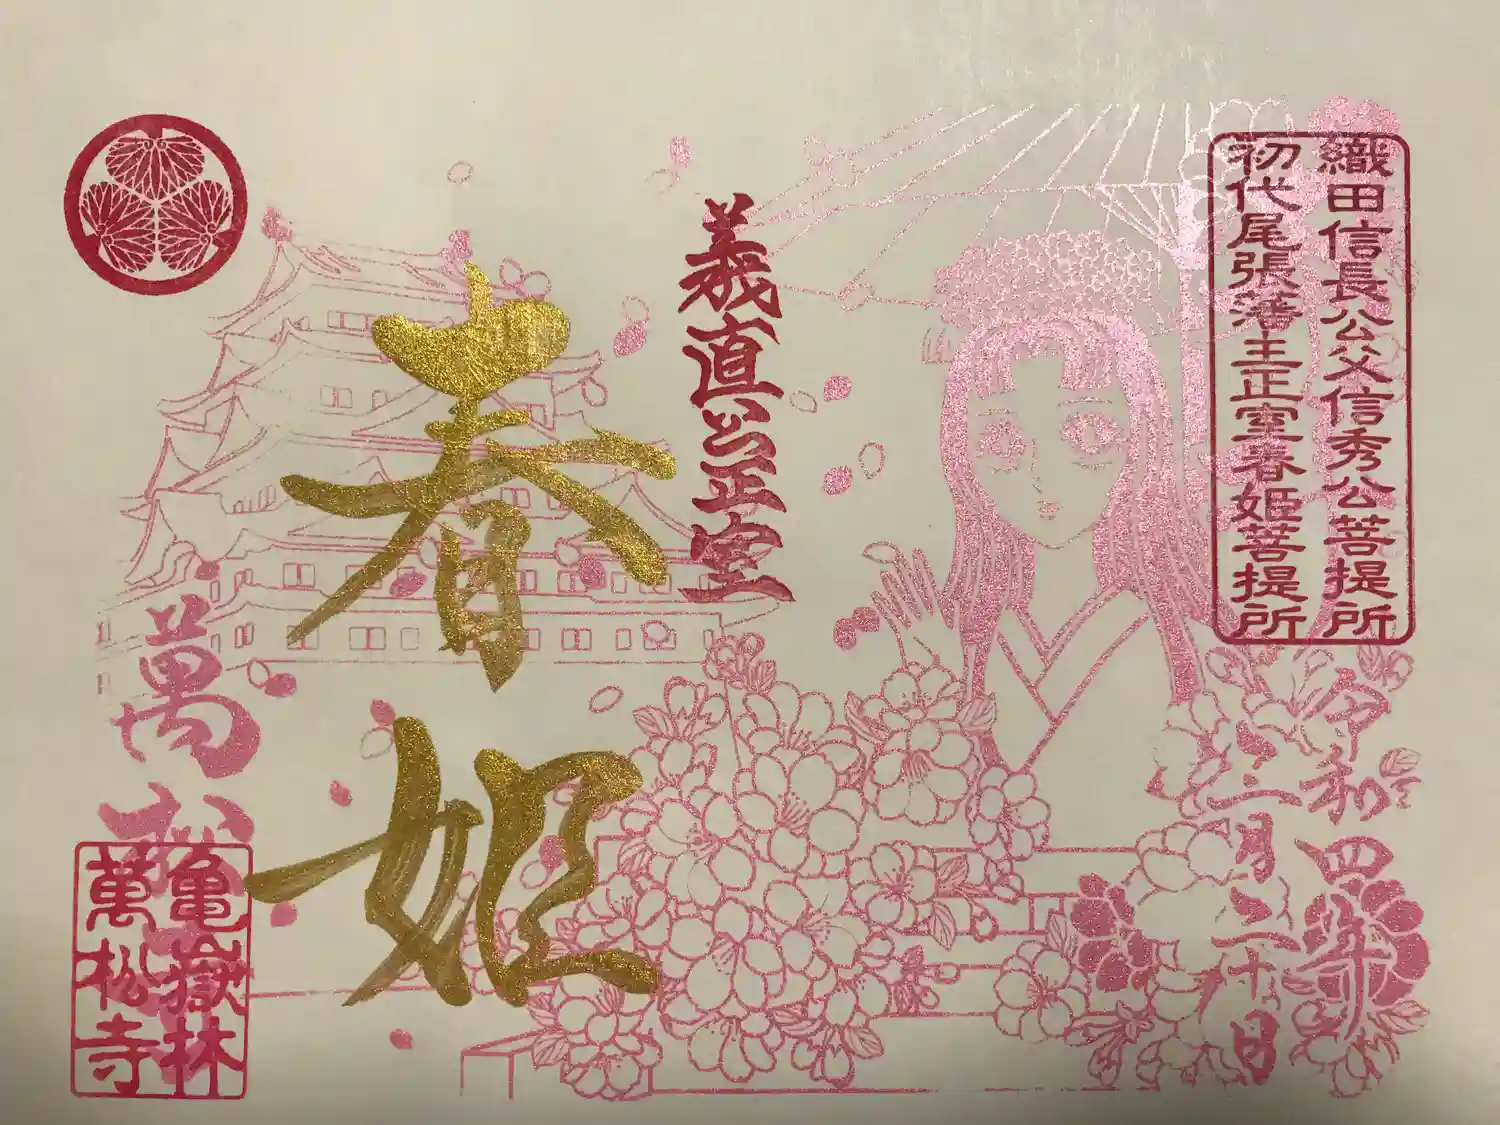 織田信長公父信秀公菩提所
初代尾張藩主正室春姫菩提所
令和四年
三月二十日
義直公正室
春姫
萬松寺
亀嶽林
萬松寺